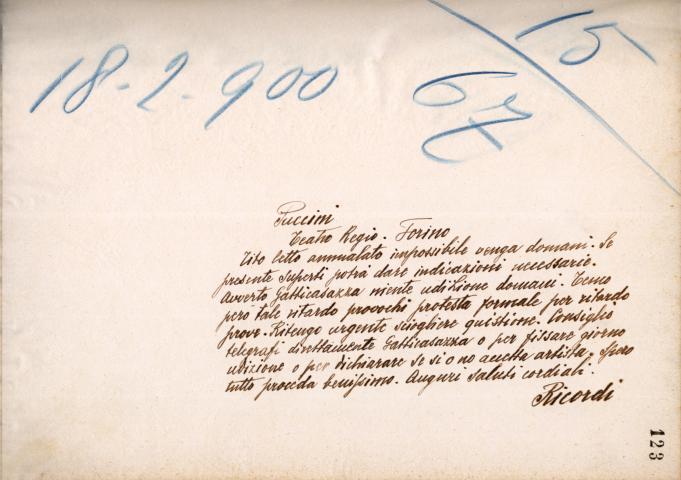 15
18-2-900 67
Puccini
Teatro Regio. Torino
Tito letto ammalato impossibile venga domani. Se
presente Superti potrà dare indicazioni necessarie.
Avverto Gatticasazza niente udizione domani. Temo
però tale ritardo provochi protesta formale per ritardo
prove. Ritengo urgente sciogliere quistione. Consiglio
telegrafi direttamente Gatticasazza o per fissare giorno
udizione o per dichiarare se si o no accetta artista. Spero
tutto proceda benissimo. Auguri saluti cordiali.
Ricordi
123